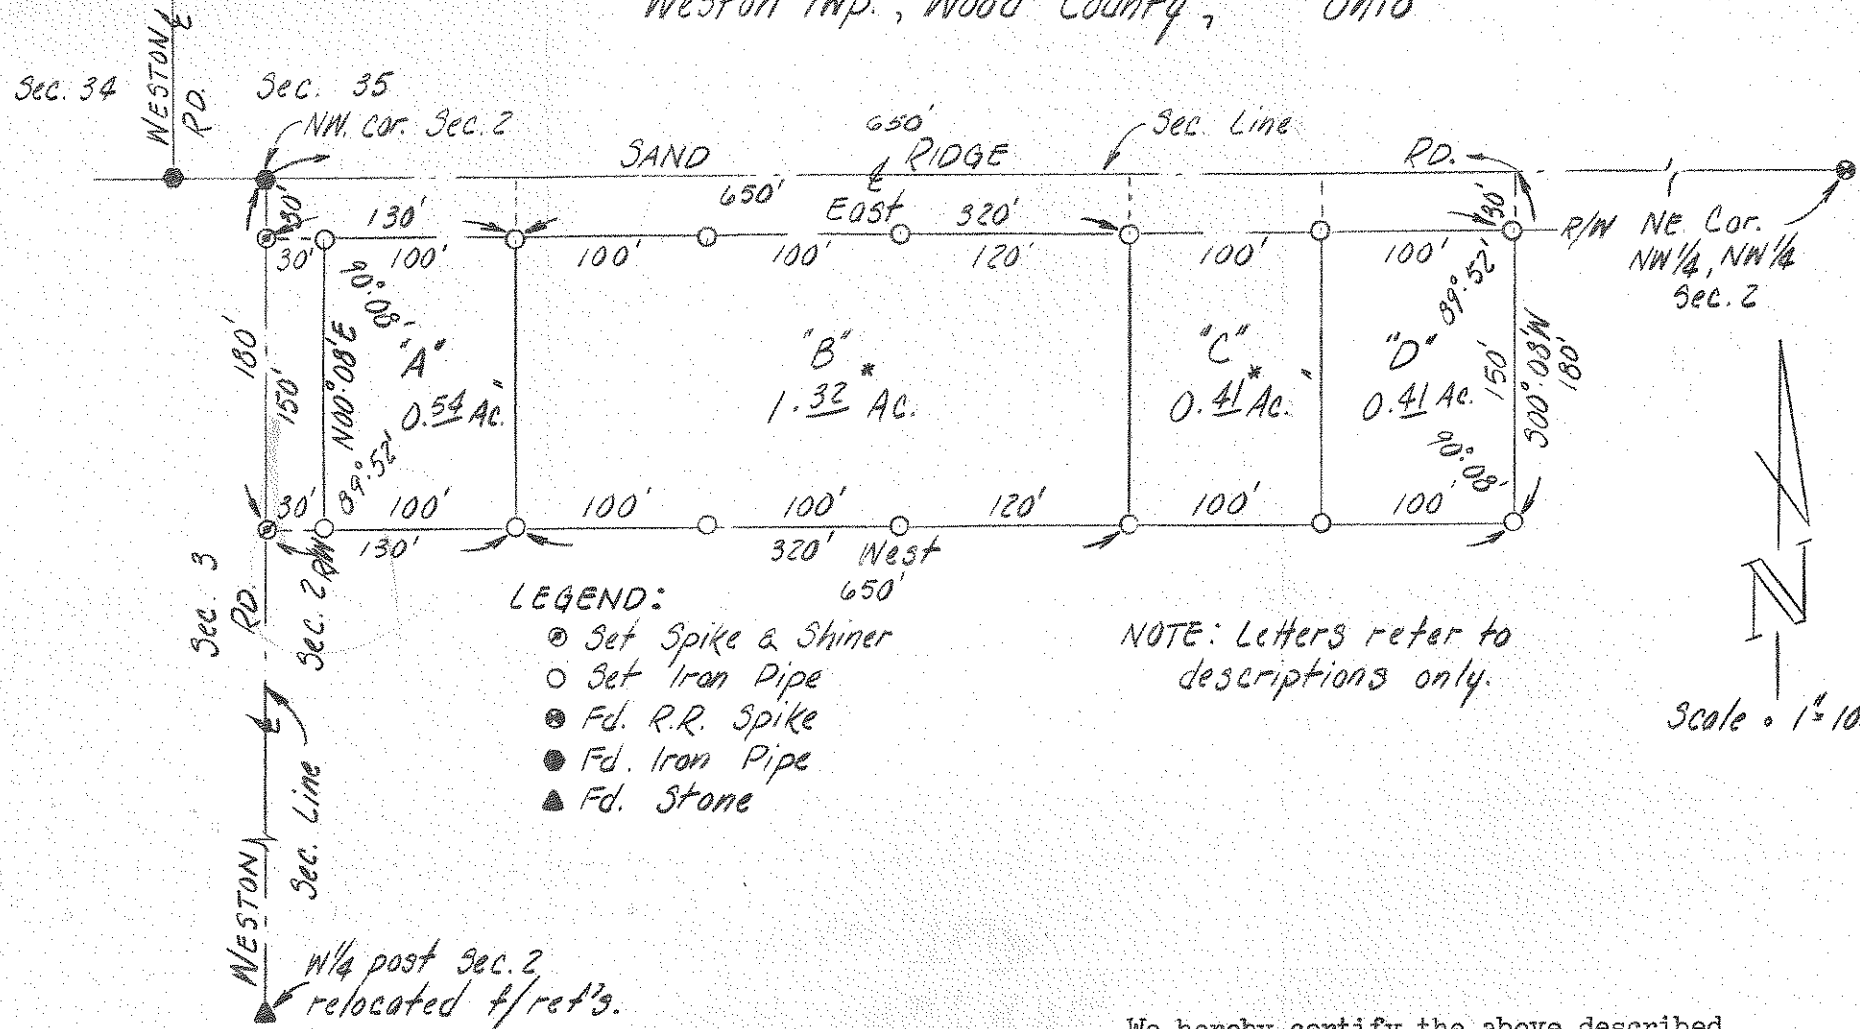 Weston Twp., Wood County, Ohio
WESTON
RD.
Sec. 34
Sec. 35
NW. cor. Sec. 2
650'
Sec. Line
SAND
RIDGE
RD.
650'
30'
130'
East
320'
30'
30'
100'
100'
100'
120'
100'
100'
R/W
NE. Cor.
NW 1/4, NW 1/4
Sec. 2
90°08'
89°52'
180'
150'
N00°08'E
"A"
0.54 Ac.
"B" *
1.32 Ac.
"C" *
0.41 Ac.
"D"
0.41 Ac.
150'
S00°08'W
180'
89°52'
90°08'
30'
100'
100'
100'
120'
100'
100'
130'
320'
West
650'
Sec. 3
RD.
Sec. 2
R/W
LEGEND:
Set Spike & Shiner
Set Iron Pipe
Fd. R.R. Spike
Fd. Iron Pipe
Fd. Stone
NOTE: Letters refer to
descriptions only.
N
Scale: 1"=10
WESTON
Sec. Line
W1/4 post Sec. 2
relocated f/ref's.
We hereby certify the above described